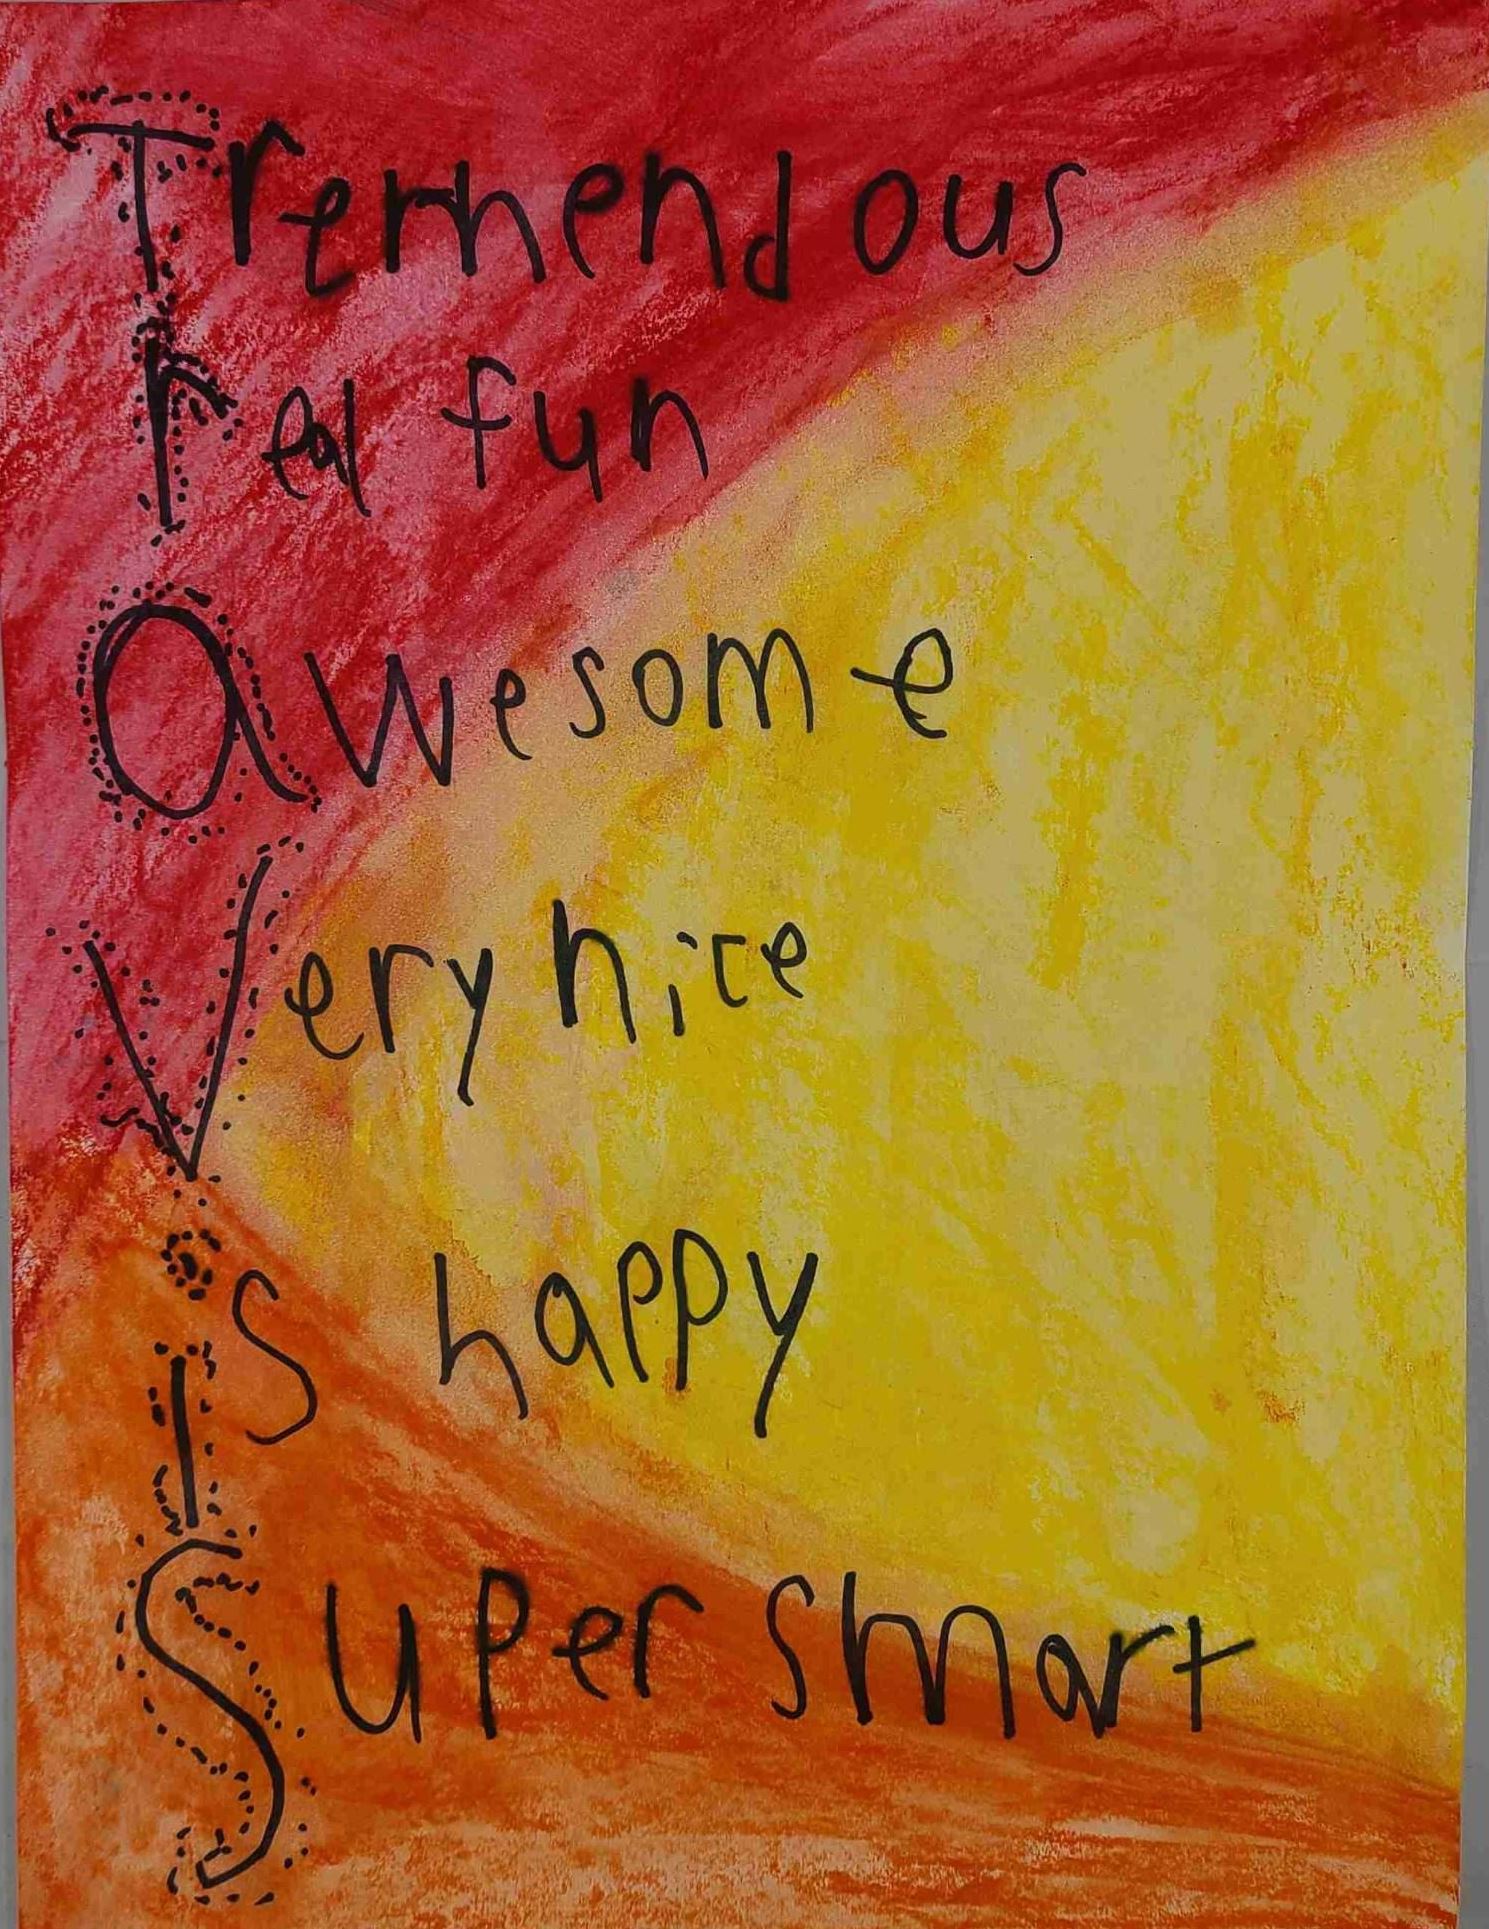 Tremendous
real fun
awesome
Very nice
is happy
Super smart